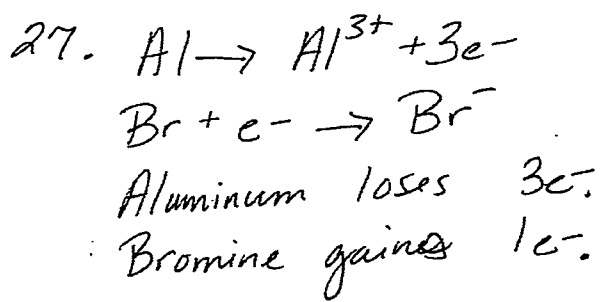 27. Al → Al³⁺ + 3e⁻
Br + e⁻ → Br⁻
Aluminum loses 3e⁻.
Bromine gains 1e⁻.